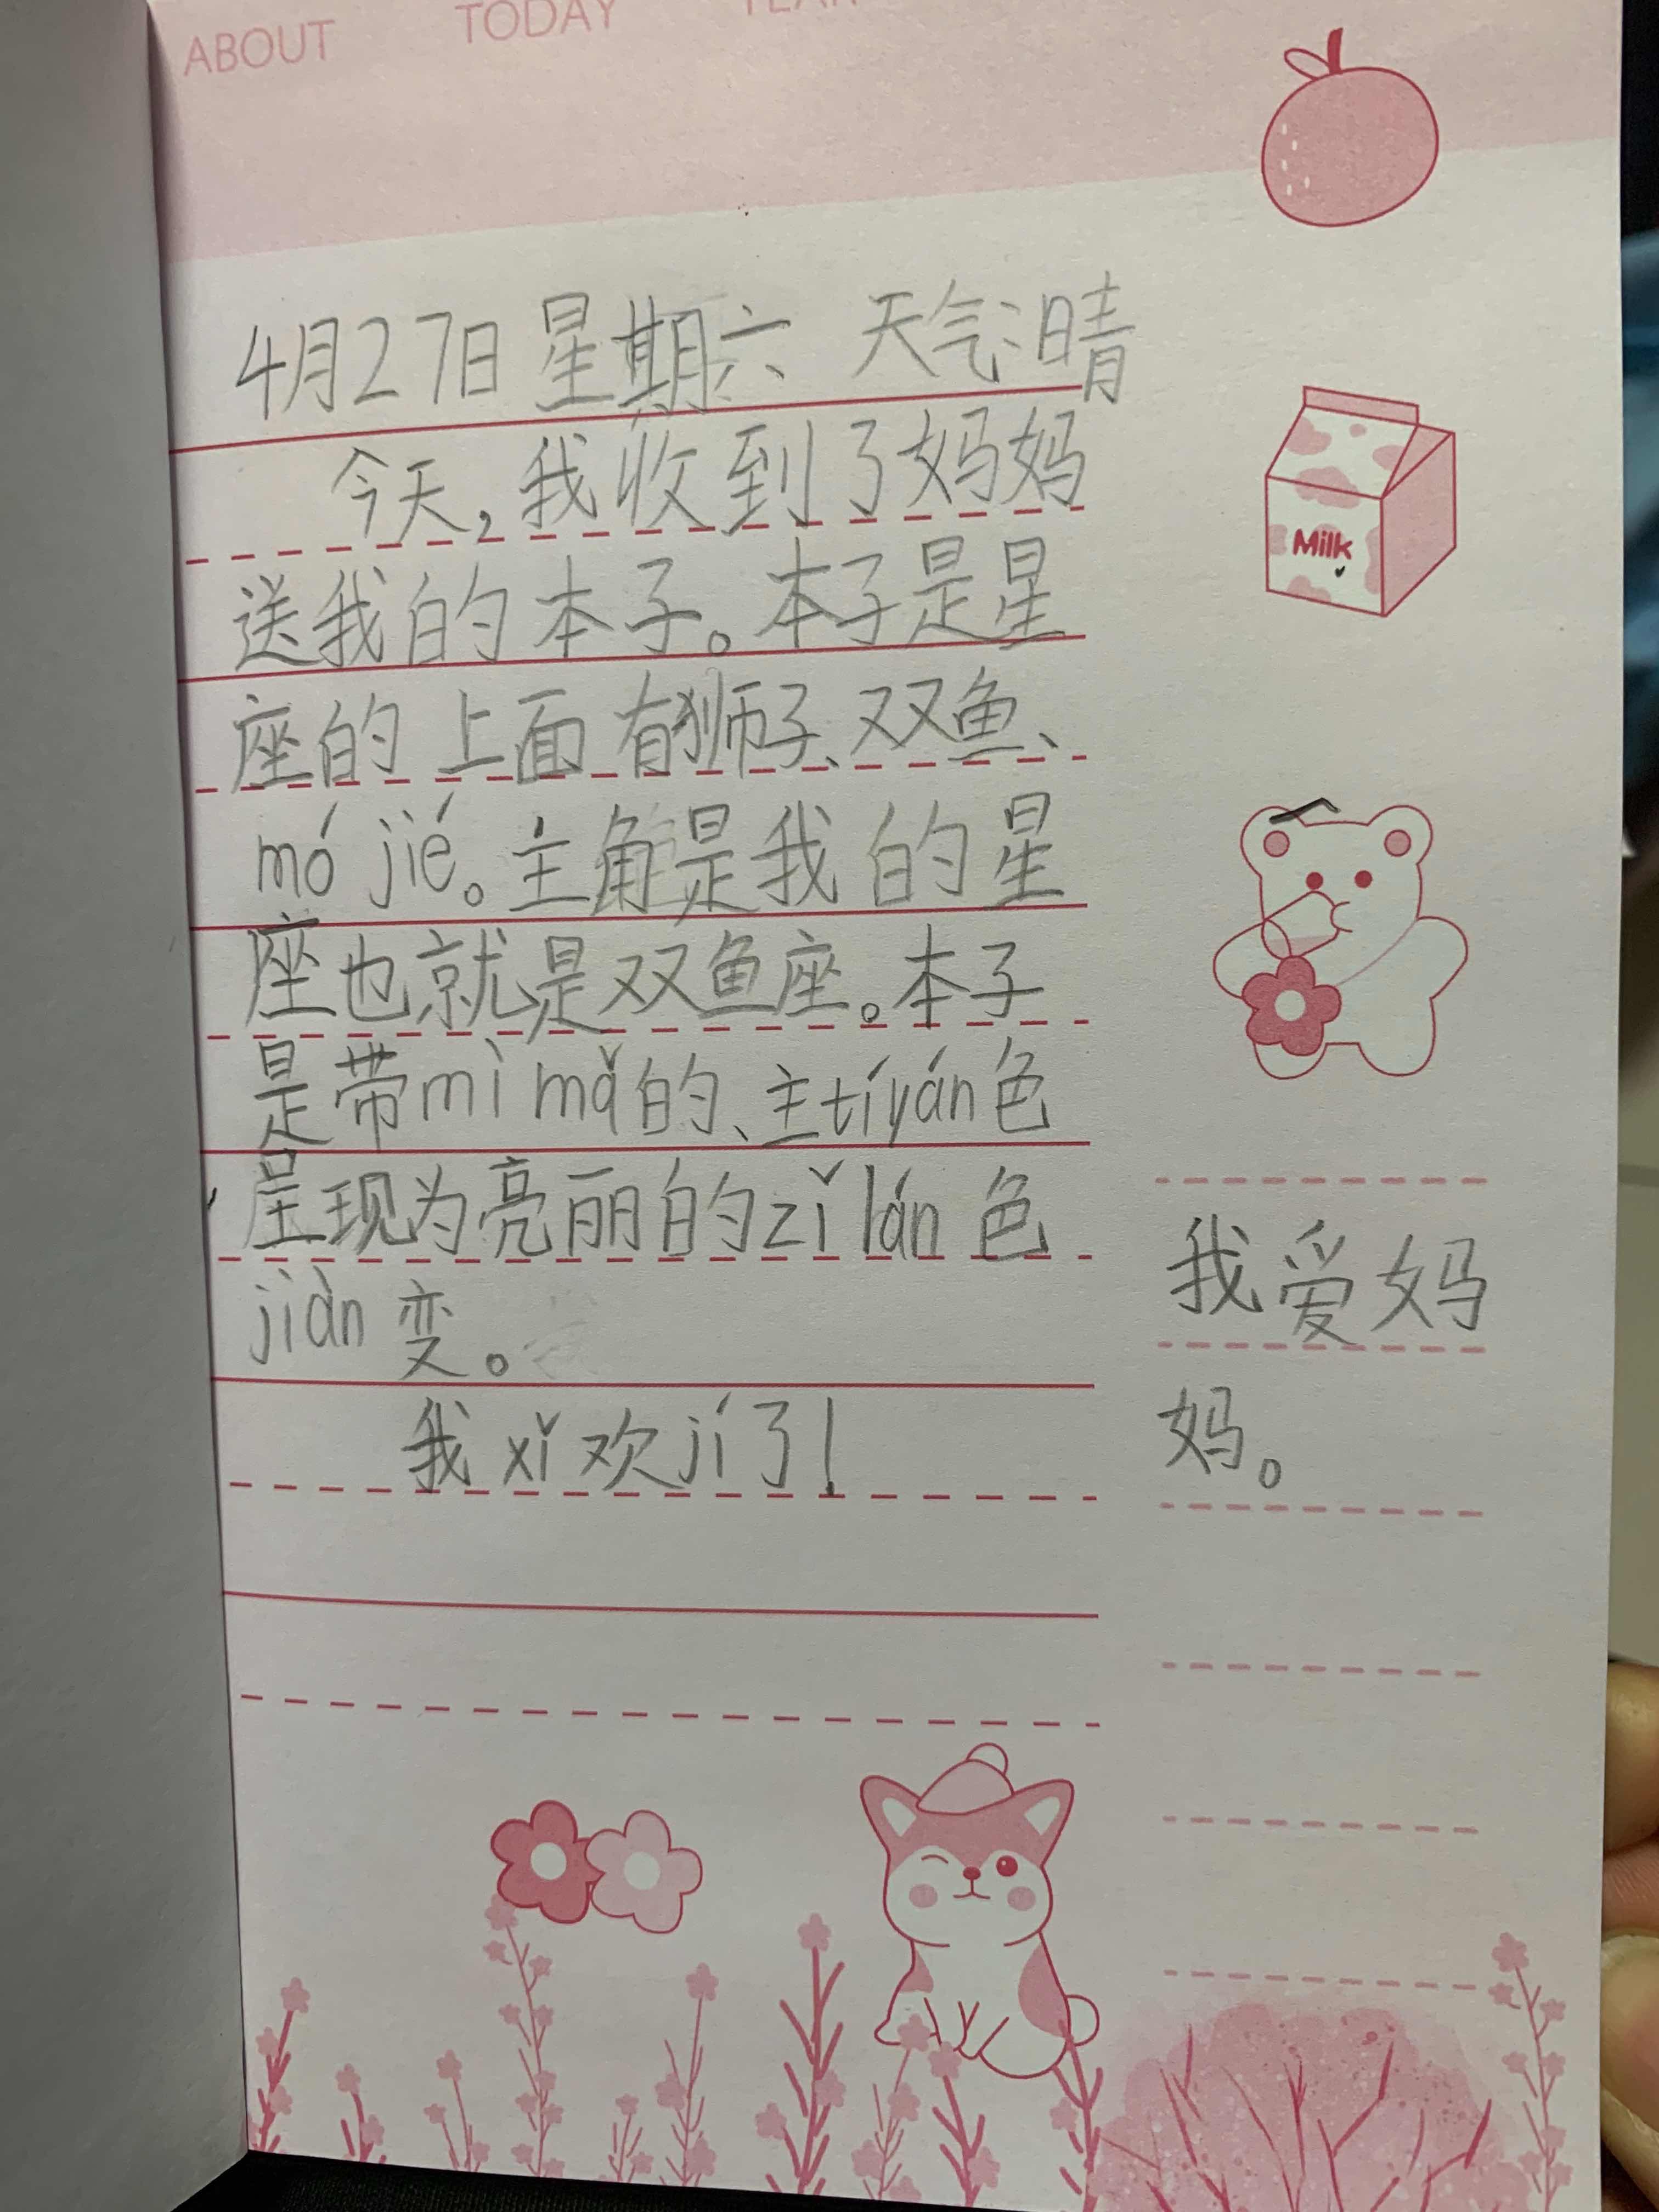 ABOUT TODAY YEAR
4月27日 星期六 天气:晴
今天,我收到了妈妈
送我的本子。本子是星
座的 上面 有狮子、双鱼、
mó jié。主角是我的星
座也就是双鱼座。本子
是带mì mǎ的、主tíyán色
呈现为亮丽的zǐ lán色
jiàn变。
我xǐ欢jí了!
Milk
我爱妈
妈。